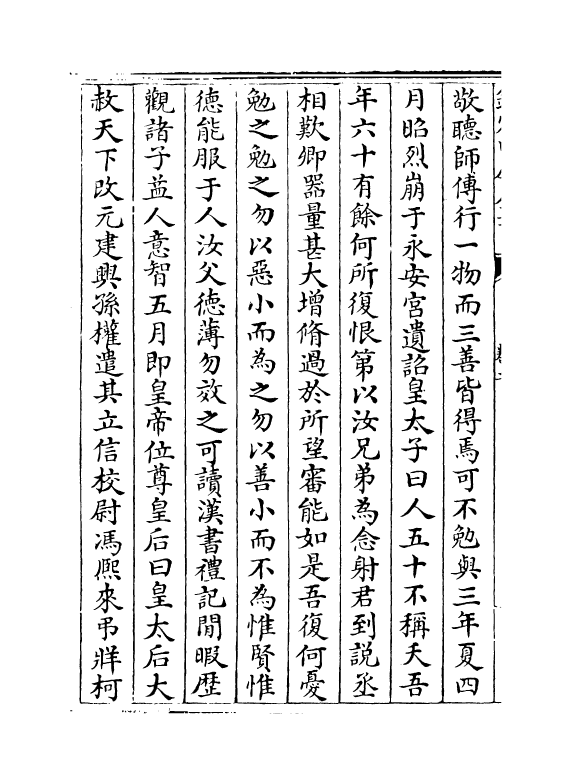 敬聽師傅行一物而三善皆得焉可不勉與三年夏四
月昭烈崩于永安宫遺詔皇太子曰人五十不稱夭吾
年六十有餘何所復恨第以汝兄弟為念射君到說丞
相歎卿器量甚大增脩過於所望審能如是吾復何憂
勉之勉之勿以惡小而為之勿以善小而不為惟賢惟
德能服于人汝父德薄勿效之可讀漢書禮記閒暇歴
觀諸子益人意智五月即皇帝位尊皇后曰皇太后大
赦天下改元建興孫權遣其立信校尉馮熈來弔牂柯